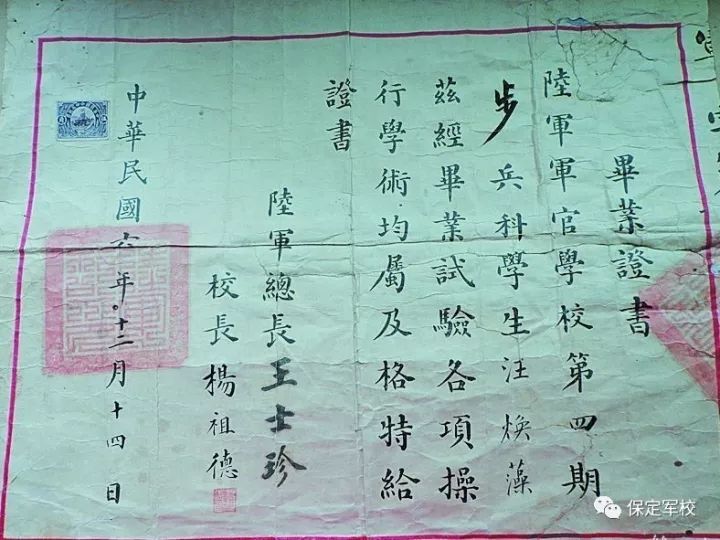 畢業證書
陸軍軍官學校第四期
步兵科學生汪煥藻
茲經畢業試驗各項操
行學術均屬及格特給
證書
陸軍總長王士珍
校長楊祖德
中華民國六年十二月十四日
保定军校